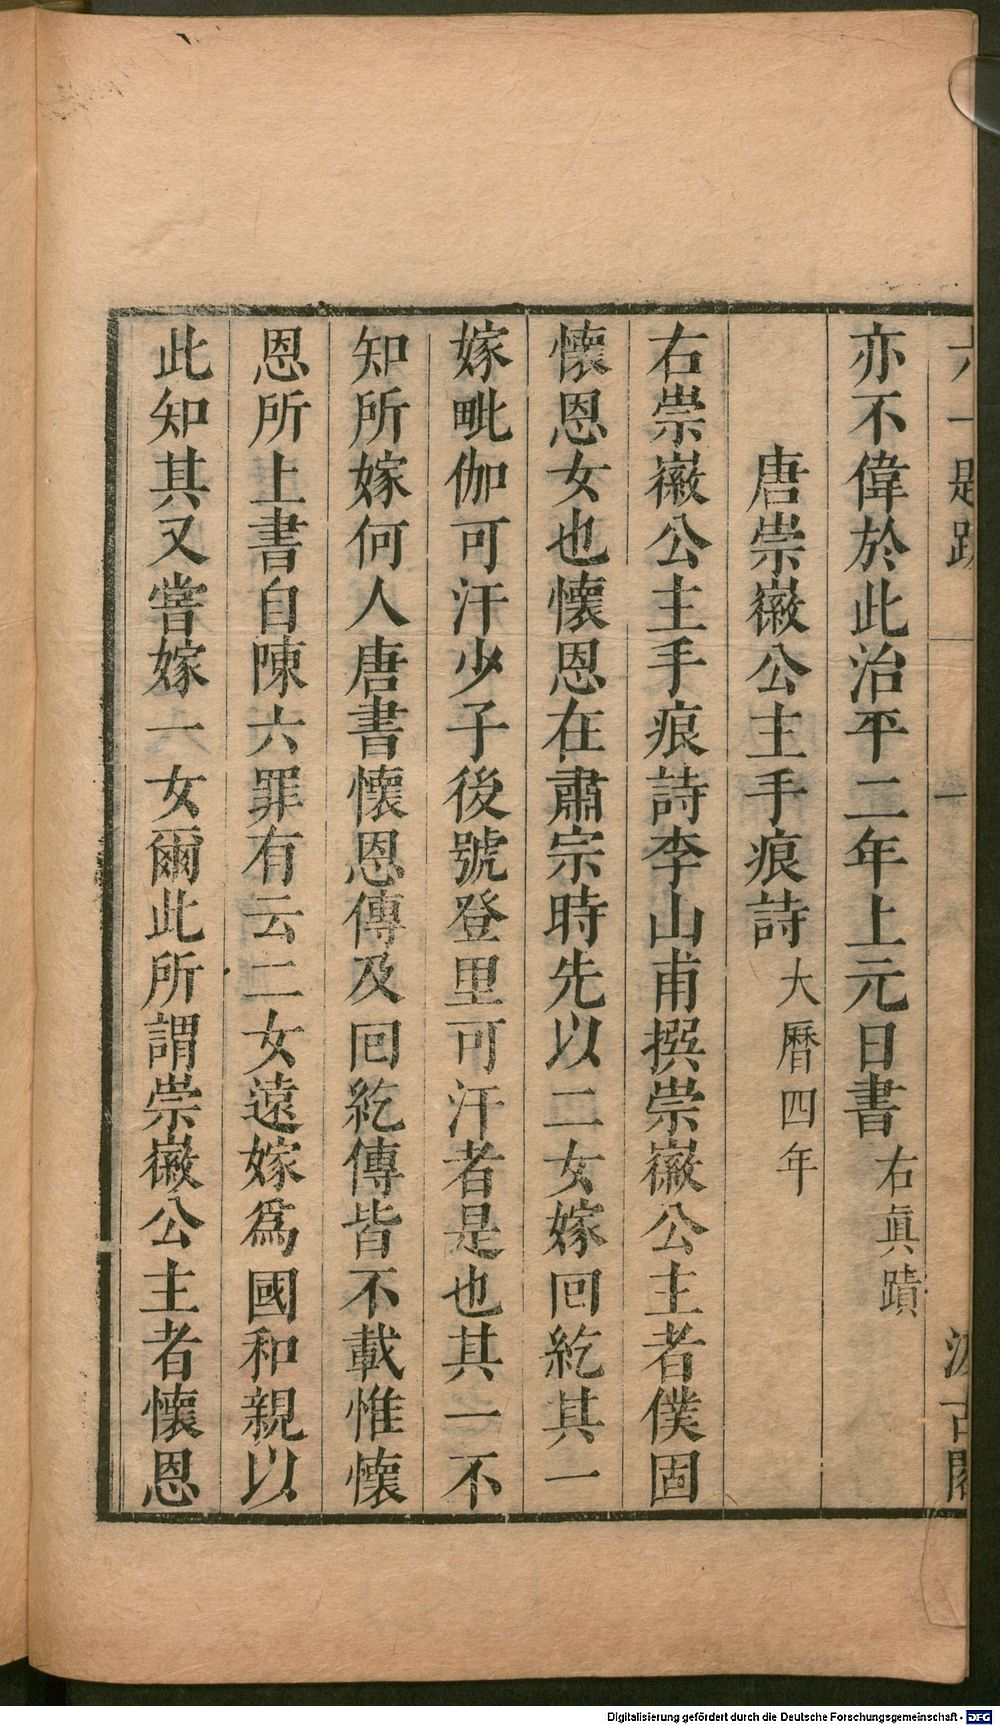 六一題跋 一 汲古閣
亦不偉於此治平二年上元日書右眞蹟
唐崇徽公主手痕詩大曆四年
右崇徽公主手痕詩李山甫撰崇徽公主者僕固
懷恩女也懷恩在肅宗時先以二女嫁回紇其一
嫁毗伽可汗少子後號登里可汗者是也其一不
知所嫁何人唐書懷恩傳及回紇傳皆不載惟懷
恩所上書自陳六罪有云二女遠嫁爲國和親以
此知其又嘗嫁一女爾此所謂崇徽公主者懷恩
Digitalisierung gefördert durch die Deutsche Forschungsgemeinschaft - DFG